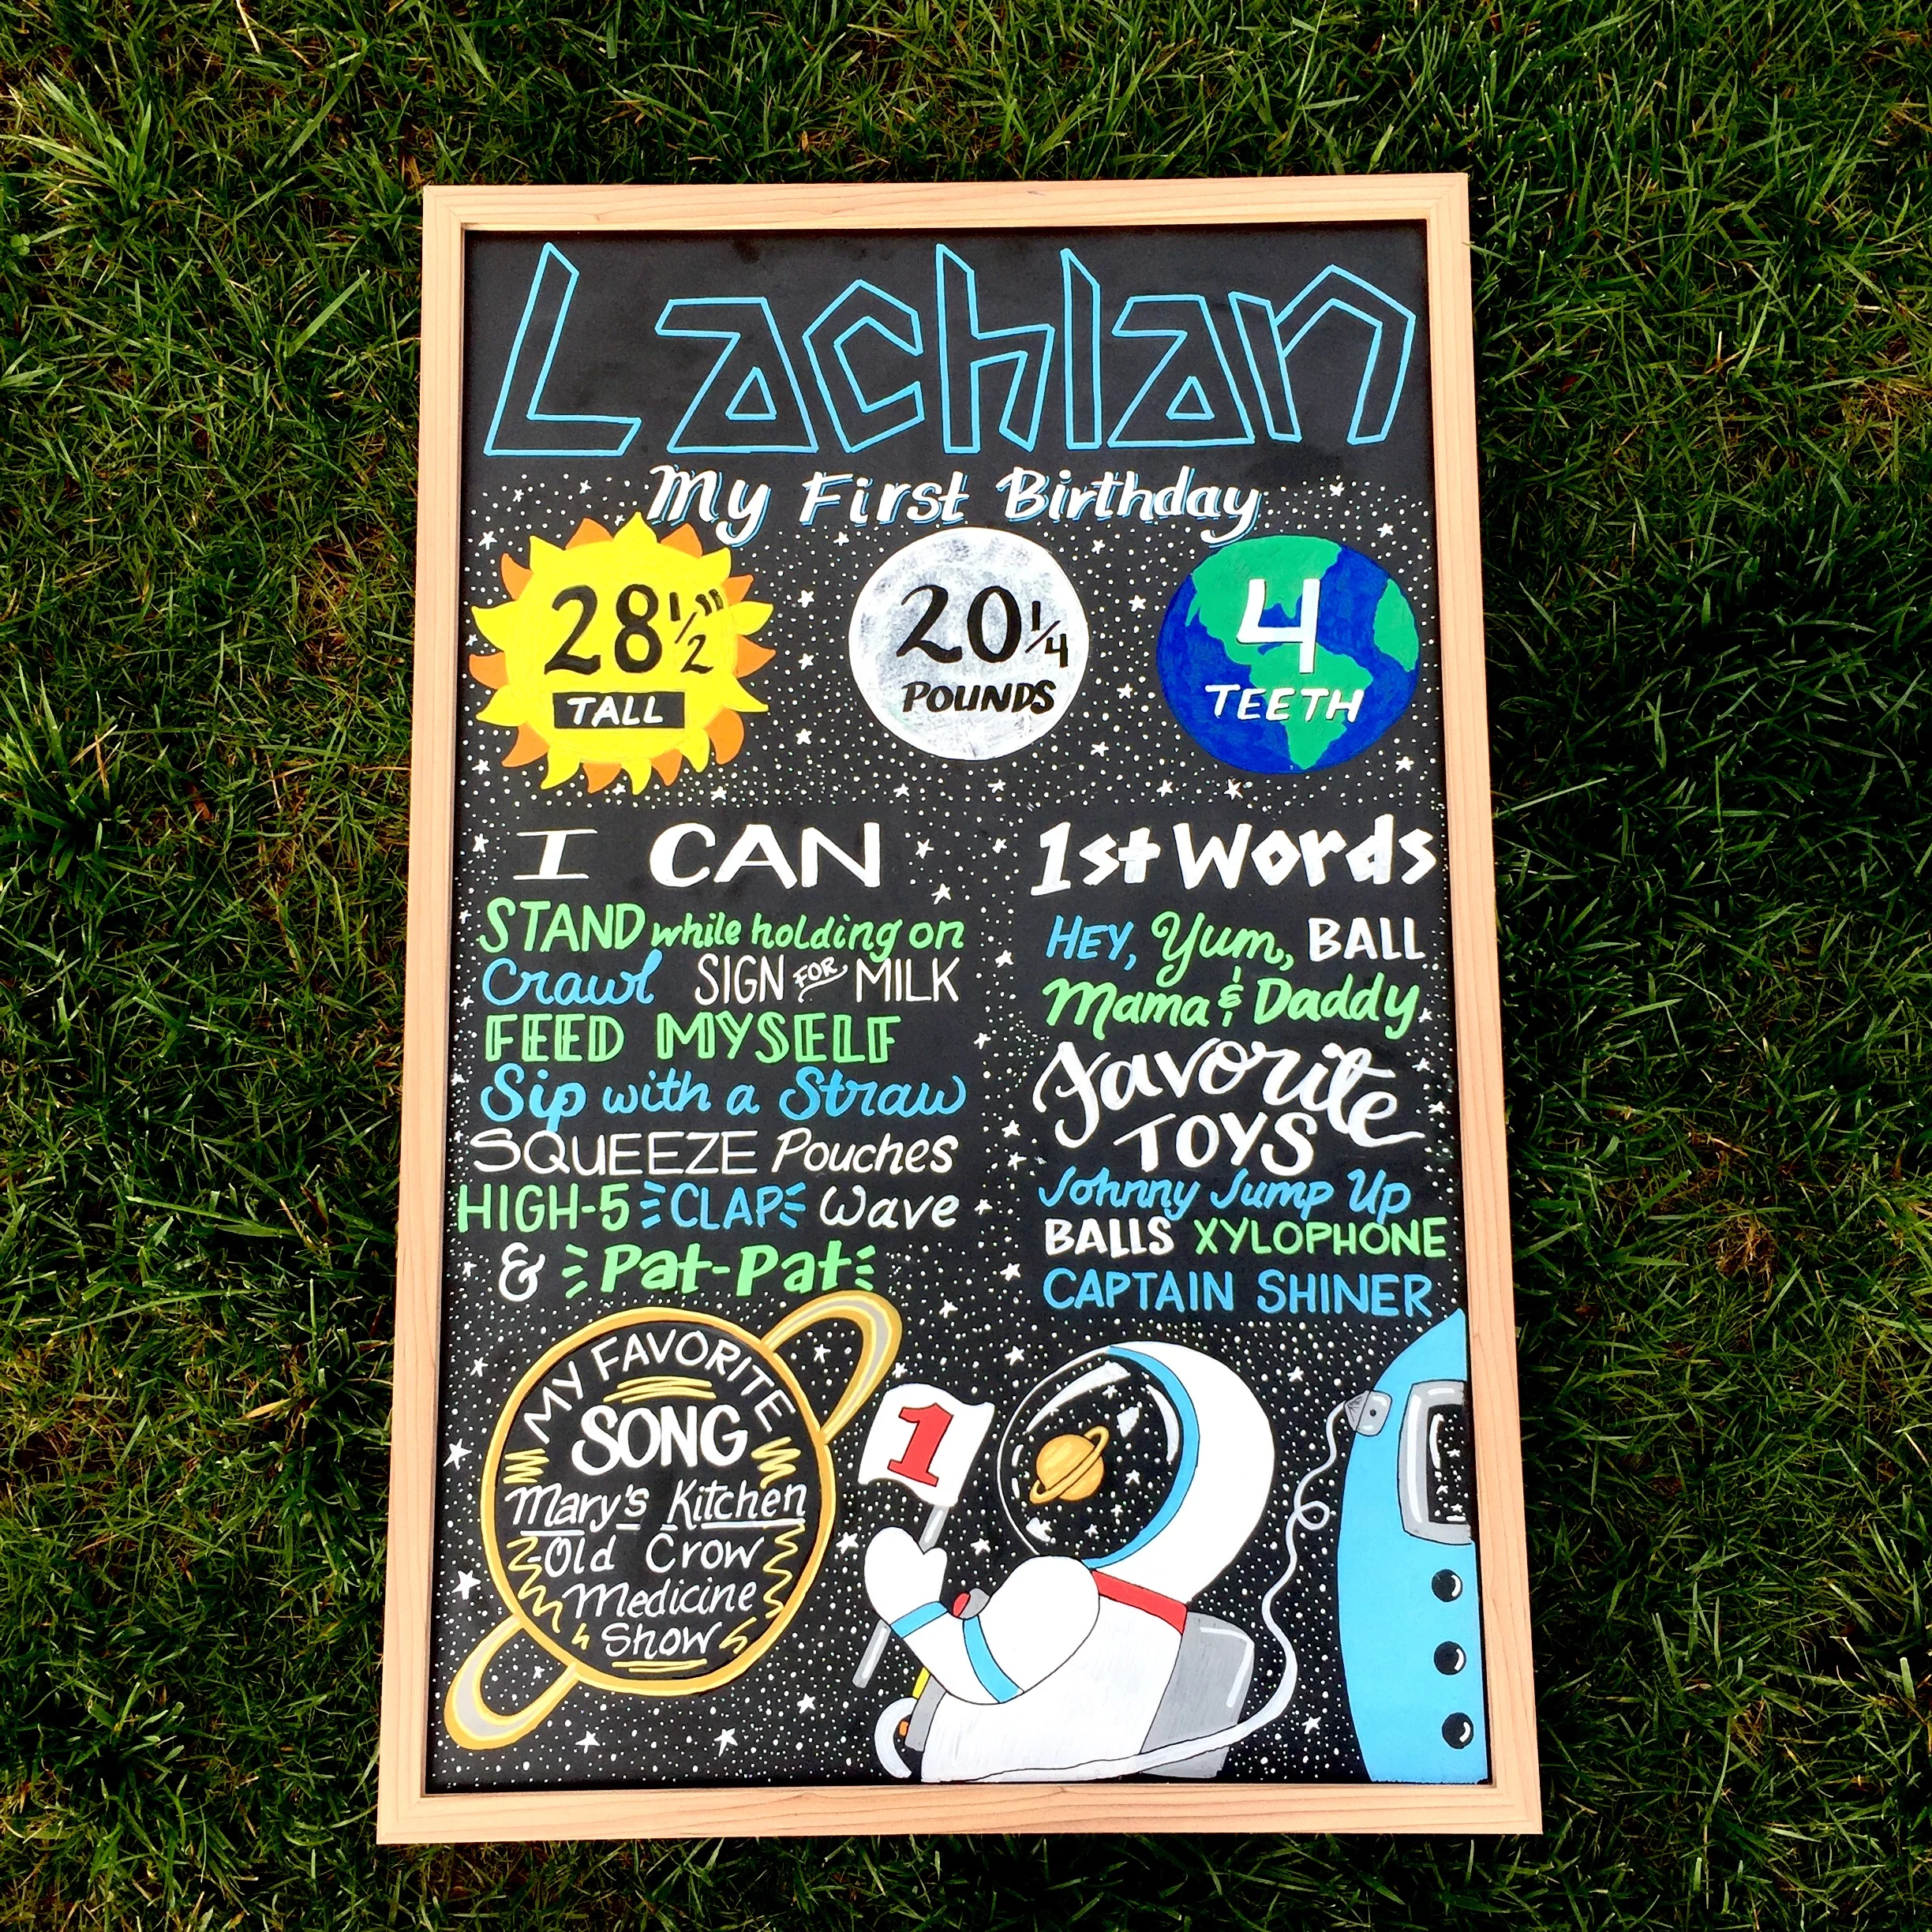 Lachlan
My First Birthday
28 1/2"
TALL
20 1/4
POUNDS
4
TEETH
I CAN
STAND while holding on
Crawl SIGN FOR MILK
FEED MYSELF
Sip with a Straw
SQUEEZE Pouches
HIGH-5 CLAP Wave
& Pat-Pat
1st Words
HEY, Yum, BALL
Mama & Daddy
Favorite
TOYS
Johnny Jump Up
BALLS XYLOPHONE
CAPTAIN SHINER
MY FAVORITE
SONG
Mary's Kitchen
-Old Crow
Medicine
Show
1